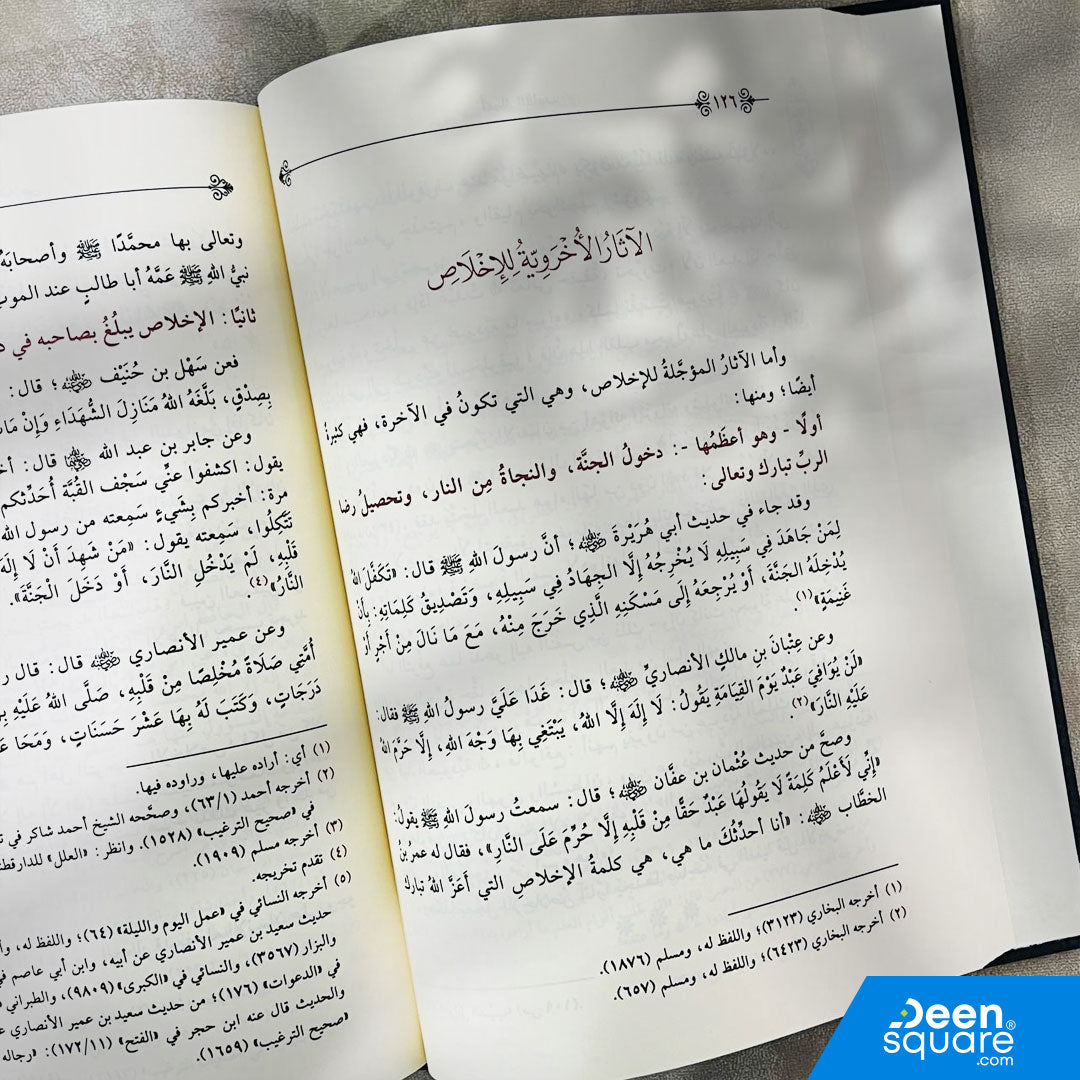 ١٢٦
الآثَارُ الأُخْرَوِيَّةُ لِلإِخْلَاصِ
وأما الآثارُ المؤجَّلةُ للإخلاص، وهي التي تكونُ في الآخرة، فهي كثيرةٌ
أيضًا؛ ومنها:
أولًا - وهو أعظَمُها -: دخولُ الجنَّة، والنجاةُ مِن النار، وتحصيلُ رضا
الربِّ تبارك وتعالى:
وقد جاء في حديث أبي هُرَيْرةَ ﵁؛ أنَّ رسولَ اللهِ ﷺ قال: «تَكَفَّلَ اللهُ
لِمَنْ جَاهَدَ فِي سَبِيلِهِ لَا يُخْرِجُهُ إِلَّا الجِهَادُ فِي سَبِيلِهِ، وَتَصْدِيقُ كَلِمَاتِهِ: بِأَنْ
يُدْخِلَهُ الجَنَّةَ، أَوْ يُرْجِعَهُ إِلَى مَسْكَنِهِ الَّذِي خَرَجَ مِنْهُ، مَعَ مَا نَالَ مِنْ أَجْرٍ أَوْ
غَنِيمَةٍ»(١).
وعن عِتْبانَ بنِ مالكٍ الأنصاريِّ ﵁؛ قال: غَدَا عَلَيَّ رسولُ اللهِ ﷺ فقال:
«لَنْ يُوَافِيَ عَبْدٌ يَوْمَ القِيَامَةِ يَقُولُ: لَا إِلَهَ إِلَّا اللهُ، يَبْتَغِي بِهَا وَجْهَ اللهِ، إِلَّا حَرَّمَ اللهُ
عَلَيْهِ النَّارَ»(٢).
وصحَّ من حديث عُثْمان بن عفَّان ﵁؛ قال: سمعتُ رسولَ اللهِ ﷺ يقولُ:
«إِنِّي لَأَعْلَمُ كَلِمَةً لَا يَقُولُهَا عَبْدٌ حَقًّا مِنْ قَلْبِهِ إِلَّا حُرِّمَ عَلَى النَّارِ»، فقال له عمرُ بنُ
الخطَّاب ﵁: «أنا أحدِّثُكَ ما هي، هي كلمةُ الإخلاصِ التي أَعَزَّ اللهُ تبارك
(١) أخرجه البخاري (٣١٢٣)؛ واللفظ له، ومسلم (١٨٧٦).
(٢) أخرجه البخاري (٦٤٢٣)؛ واللفظ له، ومسلم (٦٥٧).
وتعالى بها محمَّدًا ﷺ وأصحابَهُ
نبيُّ اللهِ ﷺ عَمَّهُ أبا طالبٍ عند الموت
ثانيًا: الإخلاص يبلُغُ بصاحبه في
فعن سَهْل بن حُنَيْف ﵁؛ قال:
بِصِدْقٍ، بَلَّغَهُ اللهُ مَنَازِلَ الشُّهَدَاءِ وَإِنْ مَاتَ
وعن جابر بن عبد الله ﵄ قال:
يقول: اكشفوا عنِّي سَجْف القُبَّة أُحَدِّثكم
مرة: أخبركم بِشَيءٍ سَمِعته من رسول الله
تَتَّكِلُوا، سَمِعته يقول: «مَنْ شَهِدَ أَنْ لَا إِلَهَ
قَلْبِهِ، لَمْ يَدْخُلِ النَّارَ، أَوْ دَخَلَ الْجَنَّةَ».
النَّارُ»(٤).
وعن عمير الأنصاري ﵁ قال: قال
أُمَّتِي صَلَاةً مُخْلِصًا مِنْ قَلْبِهِ، صَلَّى اللهُ عَلَيْهِ
دَرَجَاتٍ، وَكَتَبَ لَهُ بِهَا عَشْرَ حَسَنَاتٍ، وَمَحَا
(١) أي: أراده عليها، وراوده فيها.
(٢) أخرجه أحمد (٦٣/١)، وصحَّحه الشيخ أحمد شاكر في
في «صحيح الترغيب» (١٥٢٨). وانظر: «العلل» للدارقطني
(٣) أخرجه مسلم (١٩٠٩).
(٤) تقدم تخريجه.
(٥) أخرجه النسائي في «عمل اليوم والليلة» (٦٤)؛ واللفظ له،
حديث سعيد بن عمير الأنصاري عن أبيه، وابن أبي عاصم في
والبزار (٣٥٦٧)، والنسائي في «الكبرى» (٩٨٠٩)، والطبراني
في «الدعوات» (١٧٦)؛ من حديث سعيد بن عمير الأنصاري
والحديث قال عنه ابن حجر في «الفتح» (١٧٢/١١): «رجاله
«صحيح الترغيب» (١٦٥٩).
Deen
square®
.com